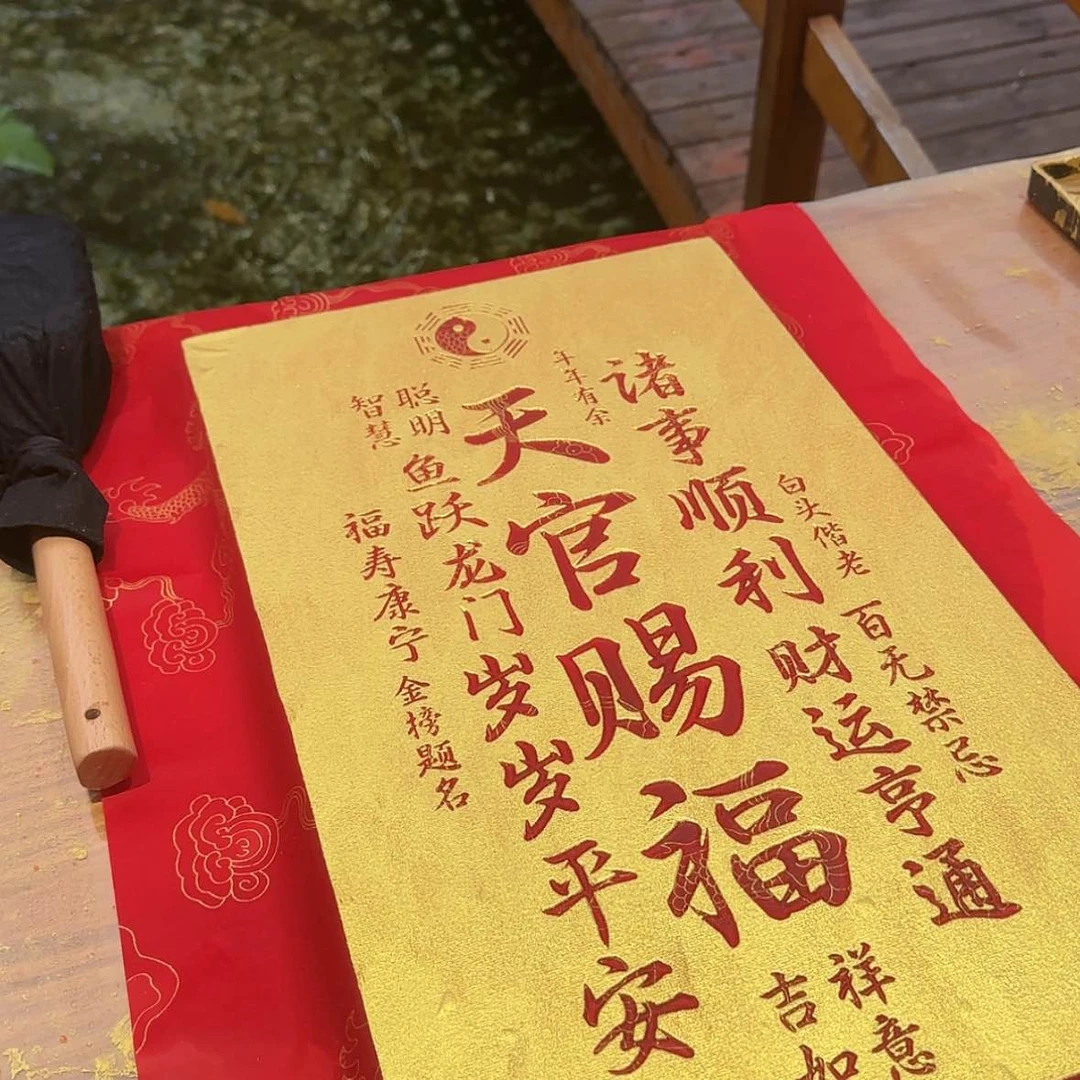 年年有余
诸事顺利
财运亨通
白头偕老
百无禁忌
天官赐福
吉祥
如意
聪明
智慧
鱼跃龙门
岁岁平安
福寿康宁
金榜题名